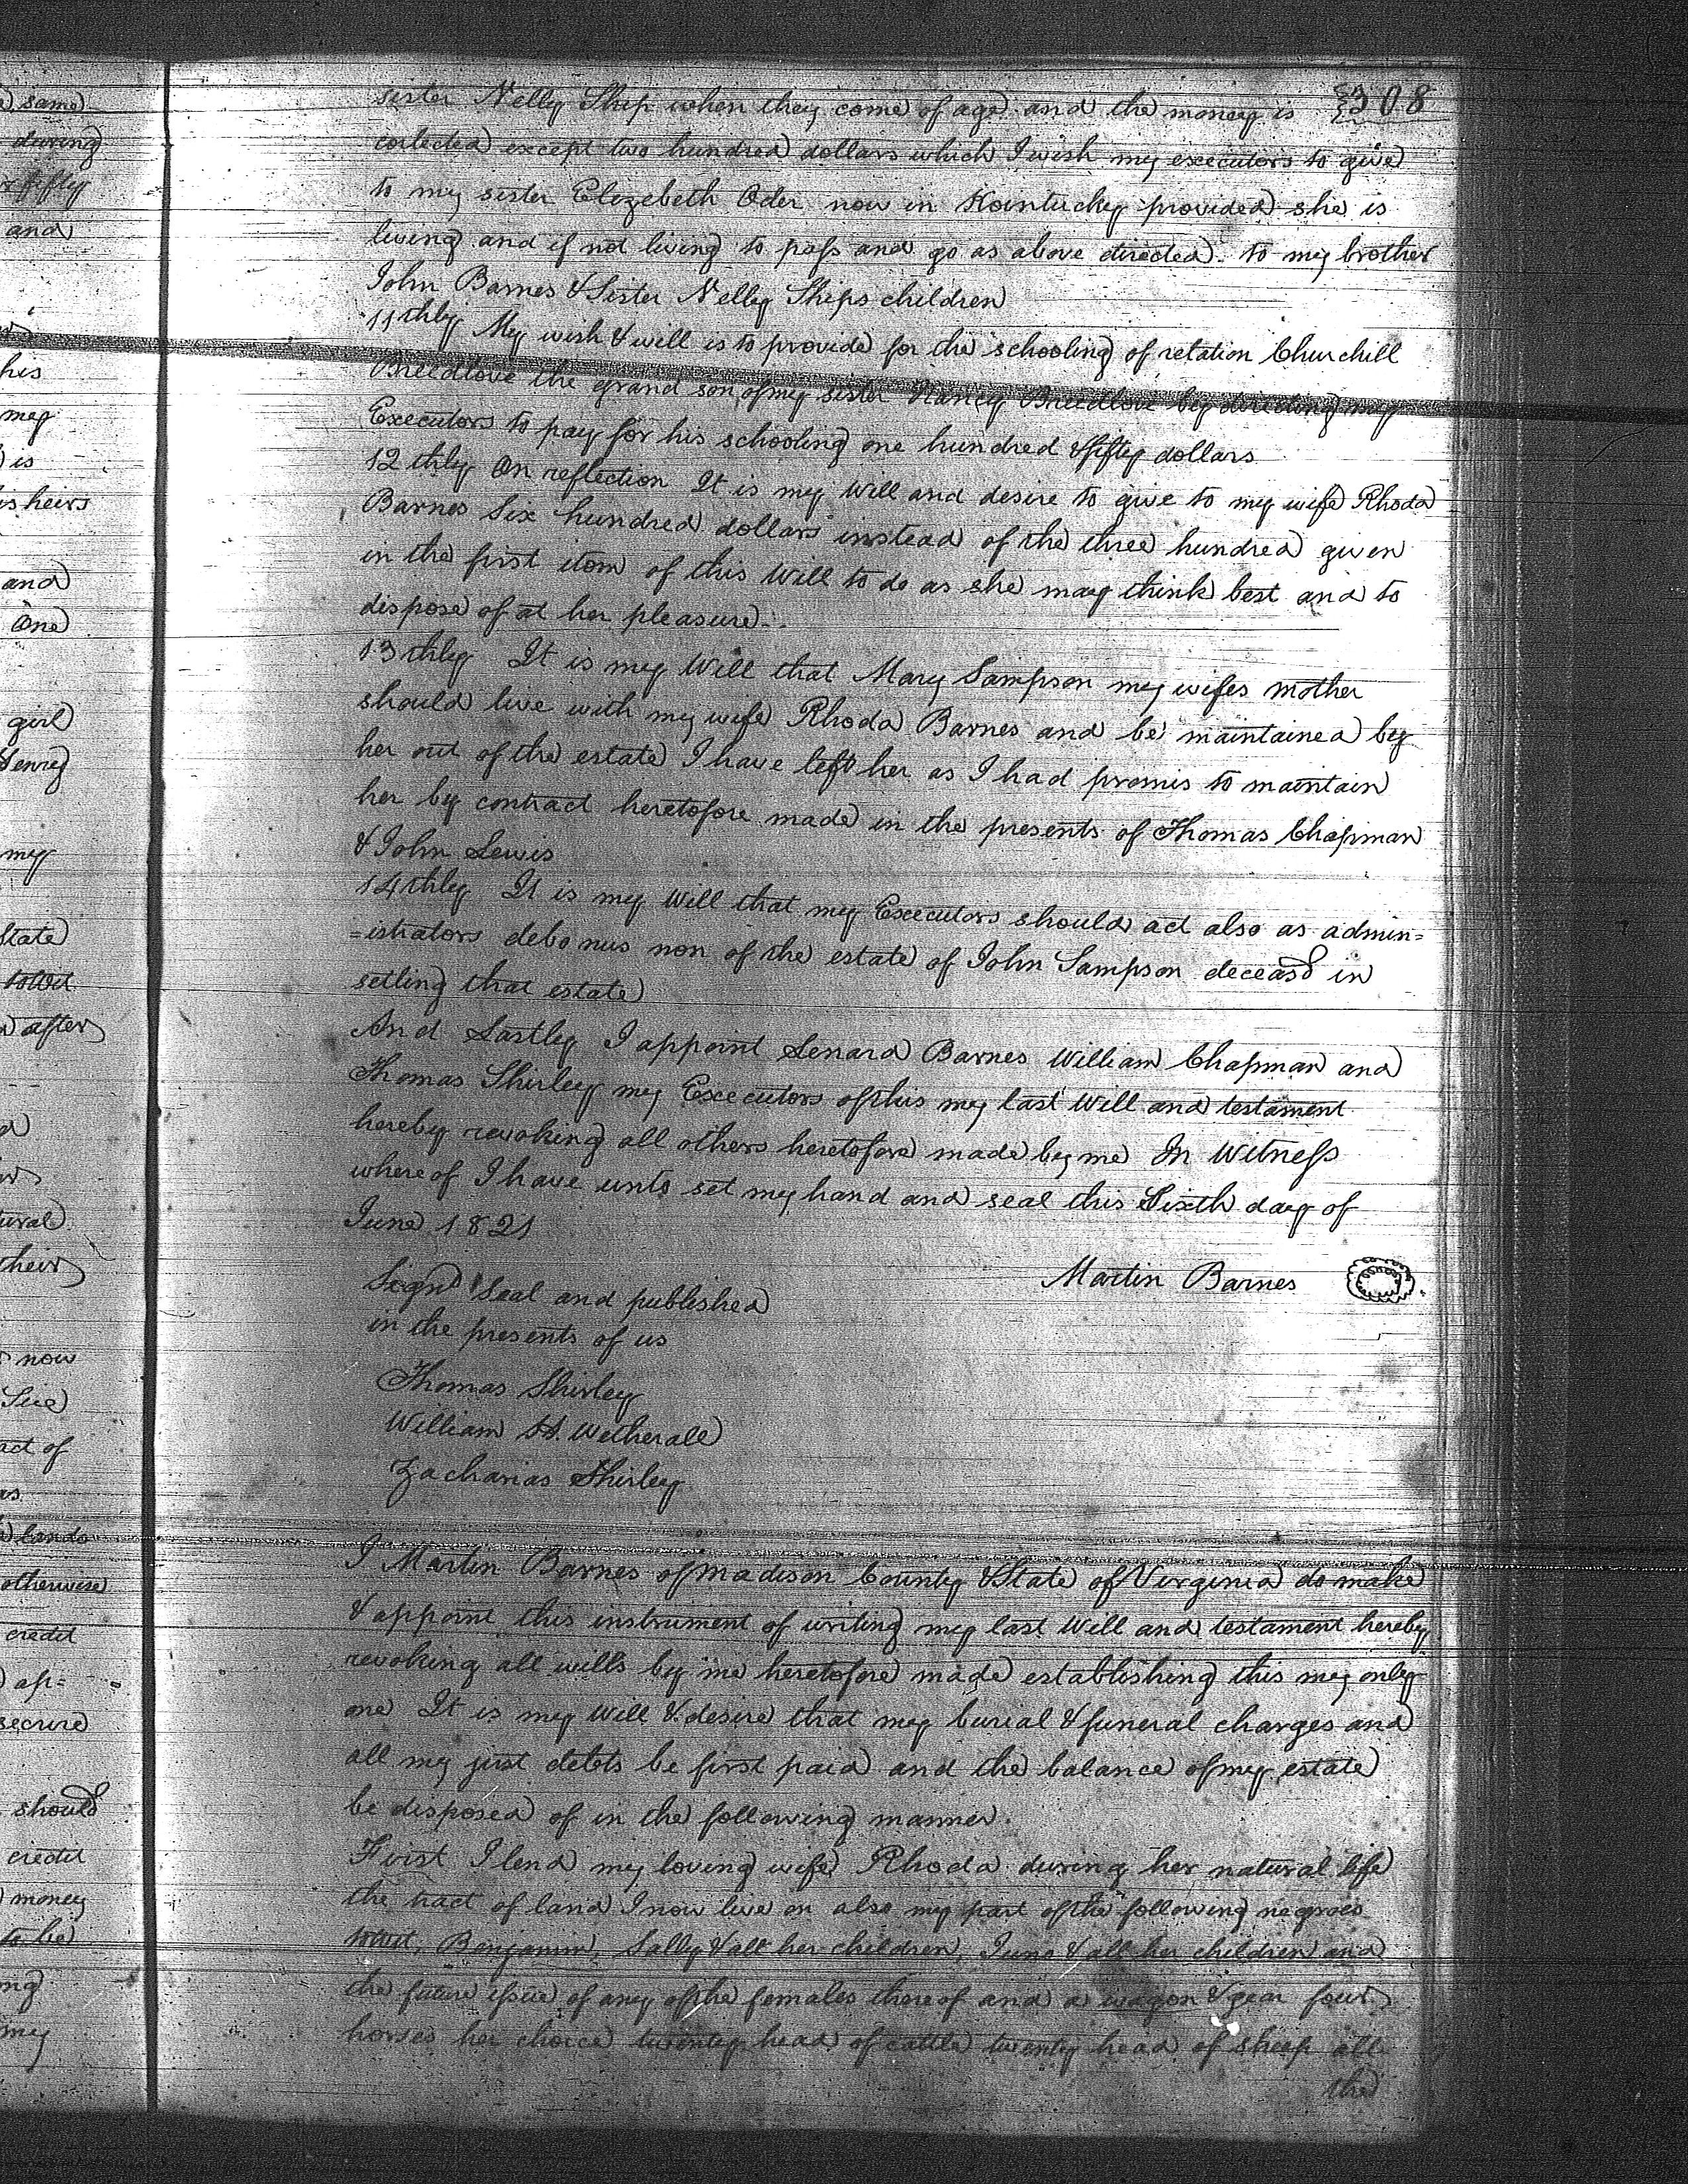 308
sister Nelly Ship when they come of age and the money is
collected except two hundred dollars which I wish my executors to give
to my sister Elezebeth Oder now in Kaintuckey provided she is
living and if not living to pass and go as above directed to my brother
John Barnes & Sister Nelly Ships children
11thly My wish & will is to provide for the schooling of relation Churchill
Breedlove the grand son of my sister Nancy Breedlove by directing my
Executors to pay for his schooling one hundred & fifty dollars
12thly On reflection It is my Will and desire to give to my wife Rhoda
Barnes Six hundred dollars instead of the three hundred given
in the first item of this Will to do as she may think best and to
dispose of at her pleasure.
13thly It is my Will that Mary Sampson my wifes mother
should live with my wife Rhoda Barnes and be maintained by
her out of the estate I have left her as I had promis to maintain
her by contract heretofore made in the presents of Thomas Chapman
& John Lewis
14thly It is my Will that my Executors should act also as admin=
=istrators debonus non of the estate of John Sampson deceasd in
setling that estate
And Lastley I appoint Lenard Barnes William Chapman and
Thomas Shirley my Executors of this my last Will and testament
hereby revoking all others heretofore made by me In Witness
where of I have unto set my hand and seal this Sixth day of
June 1821
Martin Barnes
Signd Seal and published
in the presents of us
Thomas Shirley
William H. Wetherall
Zacharias Shirley
I Martin Barnes of Madison County & State of Virginia do make
& appoint this instrument of writing my last Will and testament hereby
revoking all wills by me heretofore made establishing this my only
one It is my Will & desire that my burial & funeral charges and
all my just debts be first paid and the balance of my estate
be disposed of in the following manner.
First I lend my loving wife Rhoda during her natural life
the tract of land I now live on also my part of the following negroes
towit, Benjamin, Sally & all her children, Juno & all her children and
the future issue of any of the females thereof and a wagon & gear four
horses her choice twenty head of cattle twenty head of sheep all
the